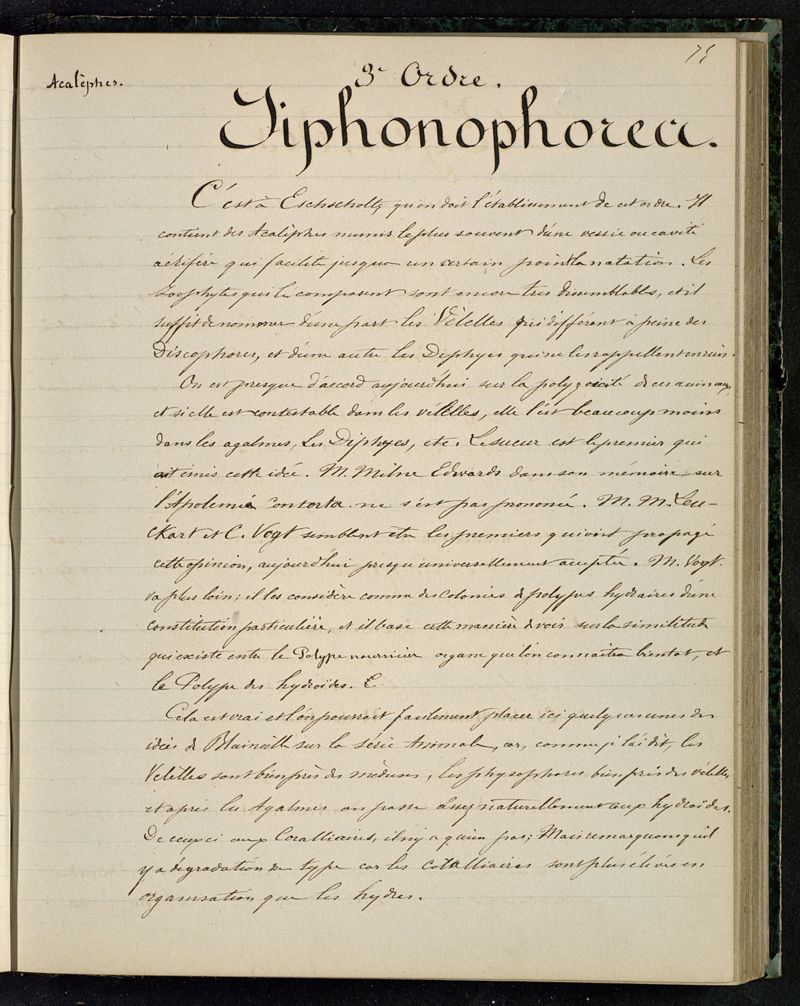 75
Acalèphes.
3e Ordre.
Siphonophorea.
C'est à Eschscholtz qu'on doit l'établissement de cet ordre. Il
contient des Acalèphes munis le plus souvent d'une vessie ou cavité
aérifère qui facilite jusqu'a un certain point la natation. Les
Zoophytes qui le composent sont encore très disemblables, et il
suffit de nommer d'une part les Vélelles qui diffèrent à peine des
Discophores, et d'une autre les Diphyes qui ne les rappellent en rien.
On est presque d'accord aujourd'hui sur la polyzoicité de ces animaux,
et si elle est contestable dans les vélelles, elle l'est beaucoup moins
dans les agalmes, les Diphyes, etc. Lesueur est le premier qui
ait émis cette idée. M. Milne Edwards dans son mémoire sur
l'Apolemia contorta ne s'est pas prononcé. M. M. Leu-
ckart et C. Vogt semblent etre les premiers qui aient propagé
cette opinion, aujourd'hui presqu'universellement acceptée. M. Vogt
va plus loin; il les considère comme des colonies de polypes hydraires d'une
constitution particulière, et il base cette manière de voir sur la similitude
qui existe entre le Polype nourricier organe que l'on connaitra bientot, et
le Polype des hydroïdes.
Cela est vrai et l'on pourrait facilement placer ici quelques unes des
idées de Blainville sur la série Animale, car, comme je l'ai dit, les
Velelles sont bien près des méduses, les physophores bien près des vélelles
et après les Agalmes on passe assez naturellement aux hydroïdes.
De ceux ci aux Coralliaires, il n'y a qu'un pas; Mais remarquons qu'il
y a dégradation du type car les coralliaires sont plus élevés en
organisation que les hydres.